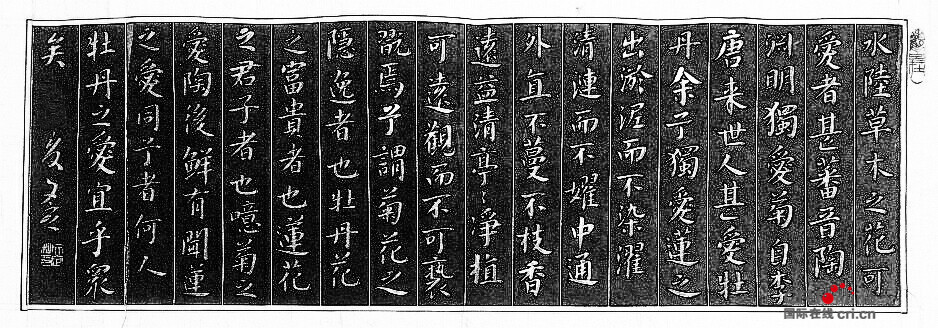 水陸草木之花可
愛者甚蕃晉陶
渊明獨愛菊自李
唐来世人甚愛牡
丹余予獨愛蓮之
出淤泥而不染濯
清漣而不嬥中通
外直不蔓不枝香
遠益清亭々淨植
可遠觀而不可褻
翫焉予謂菊花之
隐逸者也牡丹花
之富貴者也蓮花
之君子者也噫菊之
愛陶後鮮有聞蓮
之愛同予者何人
牡丹之愛宜乎眾
矣
国际在线 cri.cn